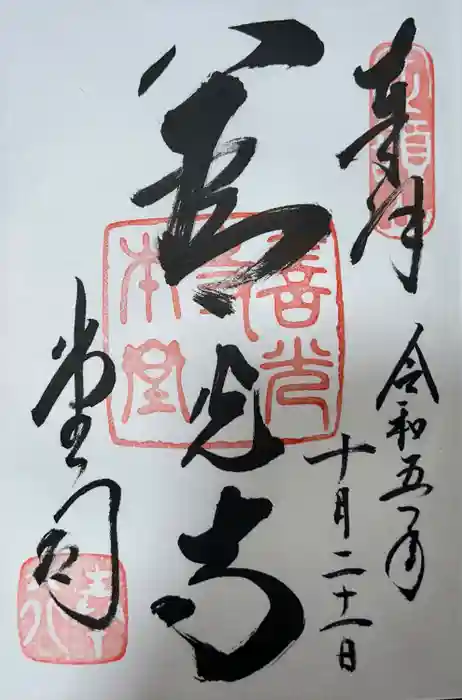 奉拝
令和五年
十月二十一日
善光寺
堂司
善光
寺
本堂